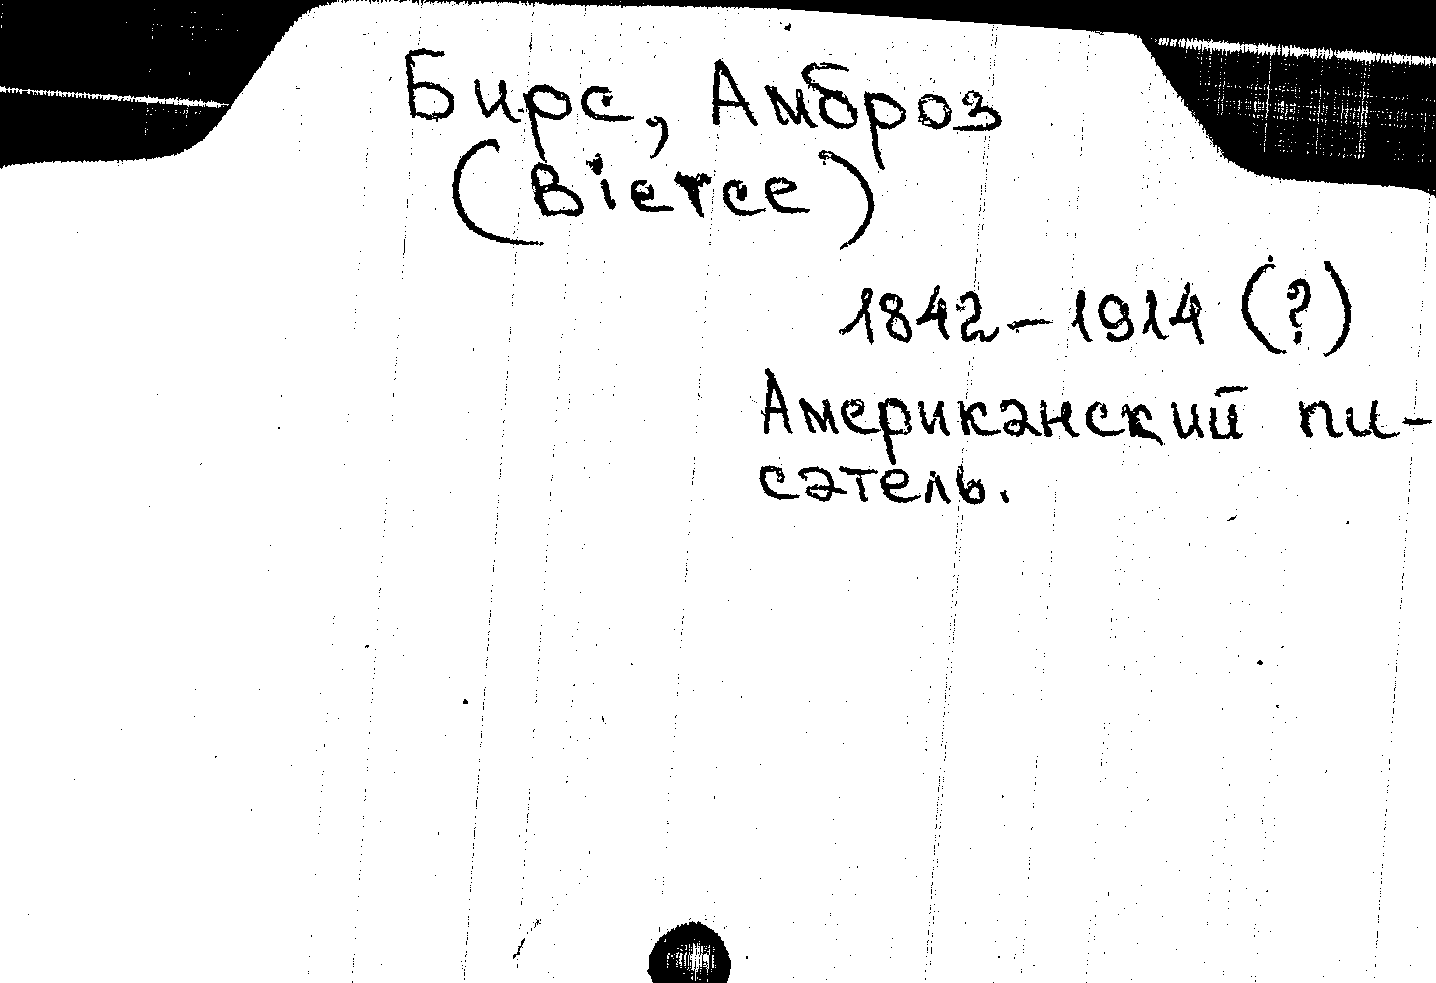 Бирс, Амброз
(Bierce)
1842-1914 (?)
Американский пи-
сатель.